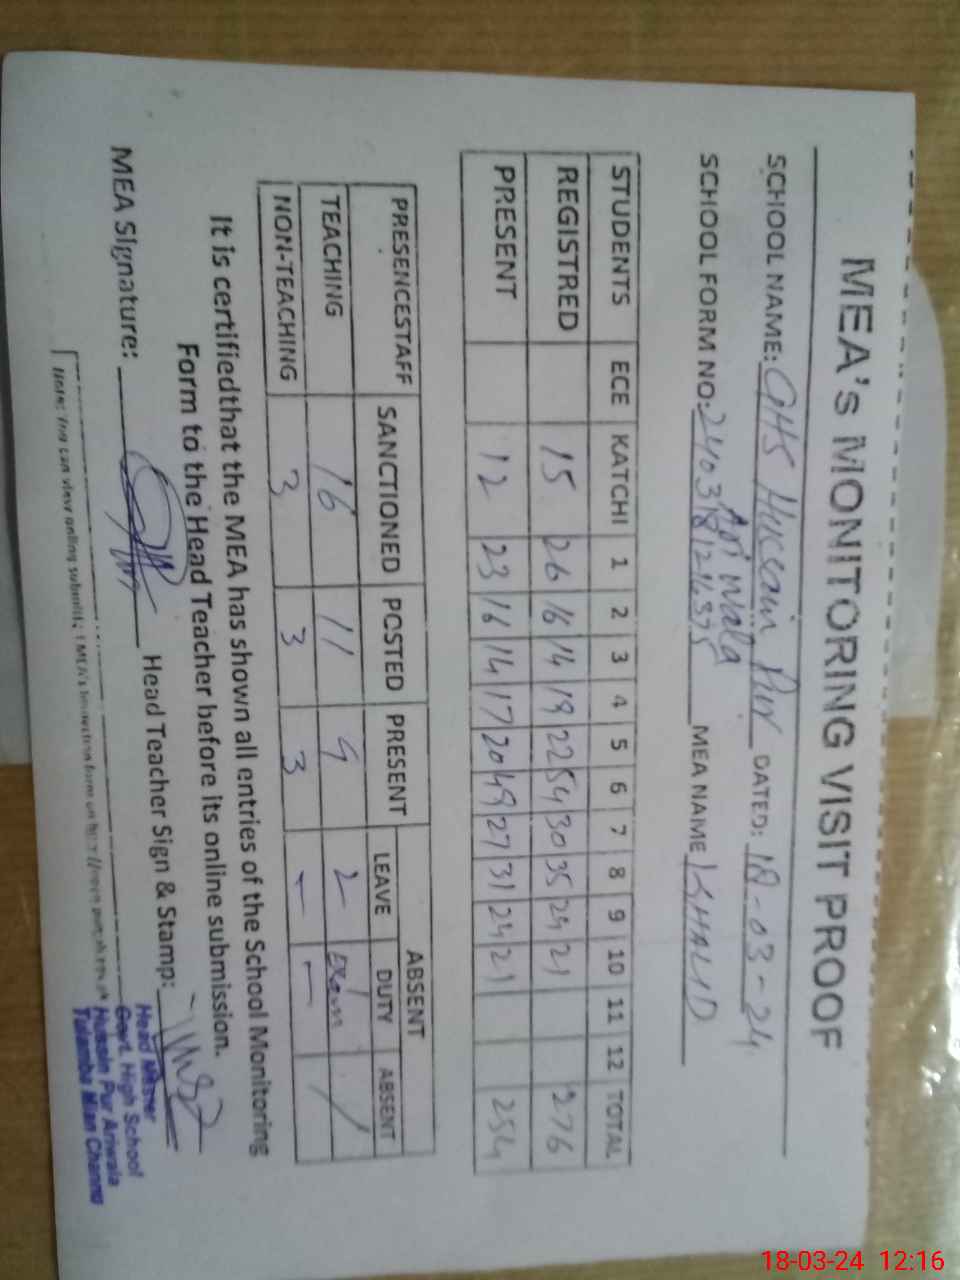 MEA's MONITORING VISIT PROOF
SCHOOL NAME: GHS Hussain Pur DATED: 18-03-24
Ari wala
SCHOOL FORM NO: MEA NAME KHALID
STUDENTS ECE KATCHI 1 2 3 4 5 6 7 8 9 10 11 12 TOTAL
REGISTRED 15 26 16 14 19 22 54 30 35 24 21 276
PRESENT 12 23 16 14 17 20 49 27 31 24 21 254
PRESENCESTAFF SANCTIONED POSTED PRESENT ABSENT
LEAVE DUTY ABSENT
TEACHING 16 11 9 2 /
NON-TEACHING 3 3 3 - -
It is certifiedthat the MEA has shown all entries of the School Monitoring
Form to the Head Teacher before its online submission.
MEA Signature: Head Teacher Sign & Stamp:
Head Master
Govt. High School
Hussain Pur Ariwala
Tulamba Mian Channu
Note: You can view online submitted MEA's Inspection form on
18-03-24 12:16